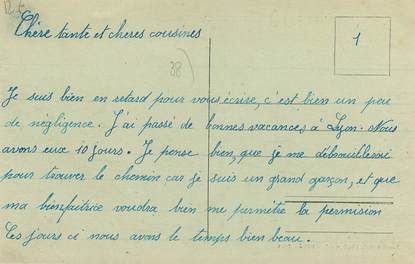 Chère tante et cheres cousines
1
38)
Je suis bien en retard pour vous écrire, c'est bien un peu
de négligence. J'ai passé de bonnes vacances à Lyon. Nous
avons eux 10 jours. Je pense bien, que je me débrouillerai
pour trouver le chemin car je suis un grand garçon, et que
ma bienfaitrice voudra bien me permetre la permision
Ces jours ci nous avons le temps bien beau.